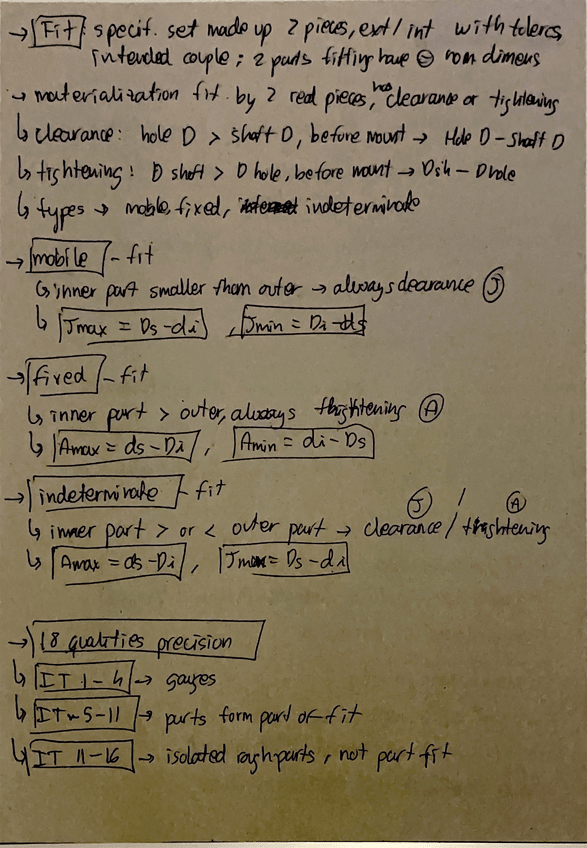 → Fit: specif. set made up 2 pieces, ext/int with tolercs
intended couple; 2 parts fitting have ⊖ nom dimens
→ materialization fit by 2 real pieces, has clearance or tightening
↳ clearance: hole D > shaft D, before mount → Hole D - Shaft D
↳ tightening: D shaft > D hole, before mount → Dsh - Dhole
↳ types → mobile, fixed, indeterminate
→ mobile - fit
↳ inner part smaller than outer → always clearance (J)
↳ Jmax = Ds - di , Jmin = Di - ds
→ fixed - fit
↳ inner part > outer, always tightening (A)
↳ Amax = ds - Di , Amin = di - Ds
→ indeterminate - fit (J) / (A)
↳ inner part > or < outer part → clearance / tightening
↳ Amax = ds - Di , Jmax = Ds - di
→ 18 qualities precision
↳ IT 1-4 → gauges
↳ IT 5-11 → parts form part of fit
↳ IT 11-16 → isolated rough parts, not part fit